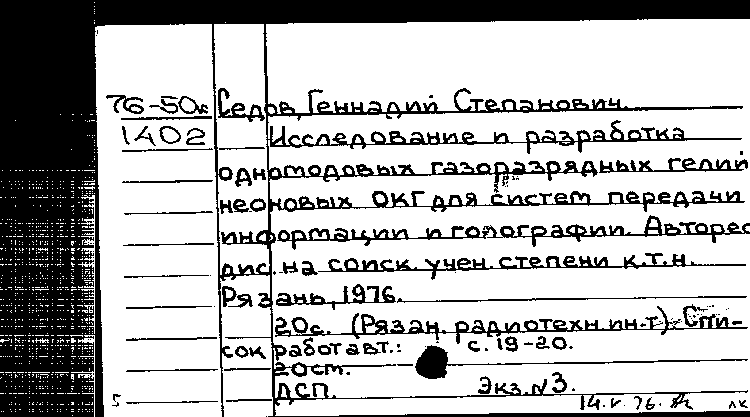 76-50к Седов, Геннадий Степанович.
1402 Исследование и разработка
одномодовых газоразрядных гелий
неоновых ОКГ для систем передачи
информации и голографии. Авторес
дис. на соиск. учен. степени к.т.н.
Рязань, 1976.
20с. (Рязан. радиотехн. ин-т). Спи-
сок работ авт.: с. 19-20.
20ст.
ДСП. Экз. N 3.
5 14.V.76.